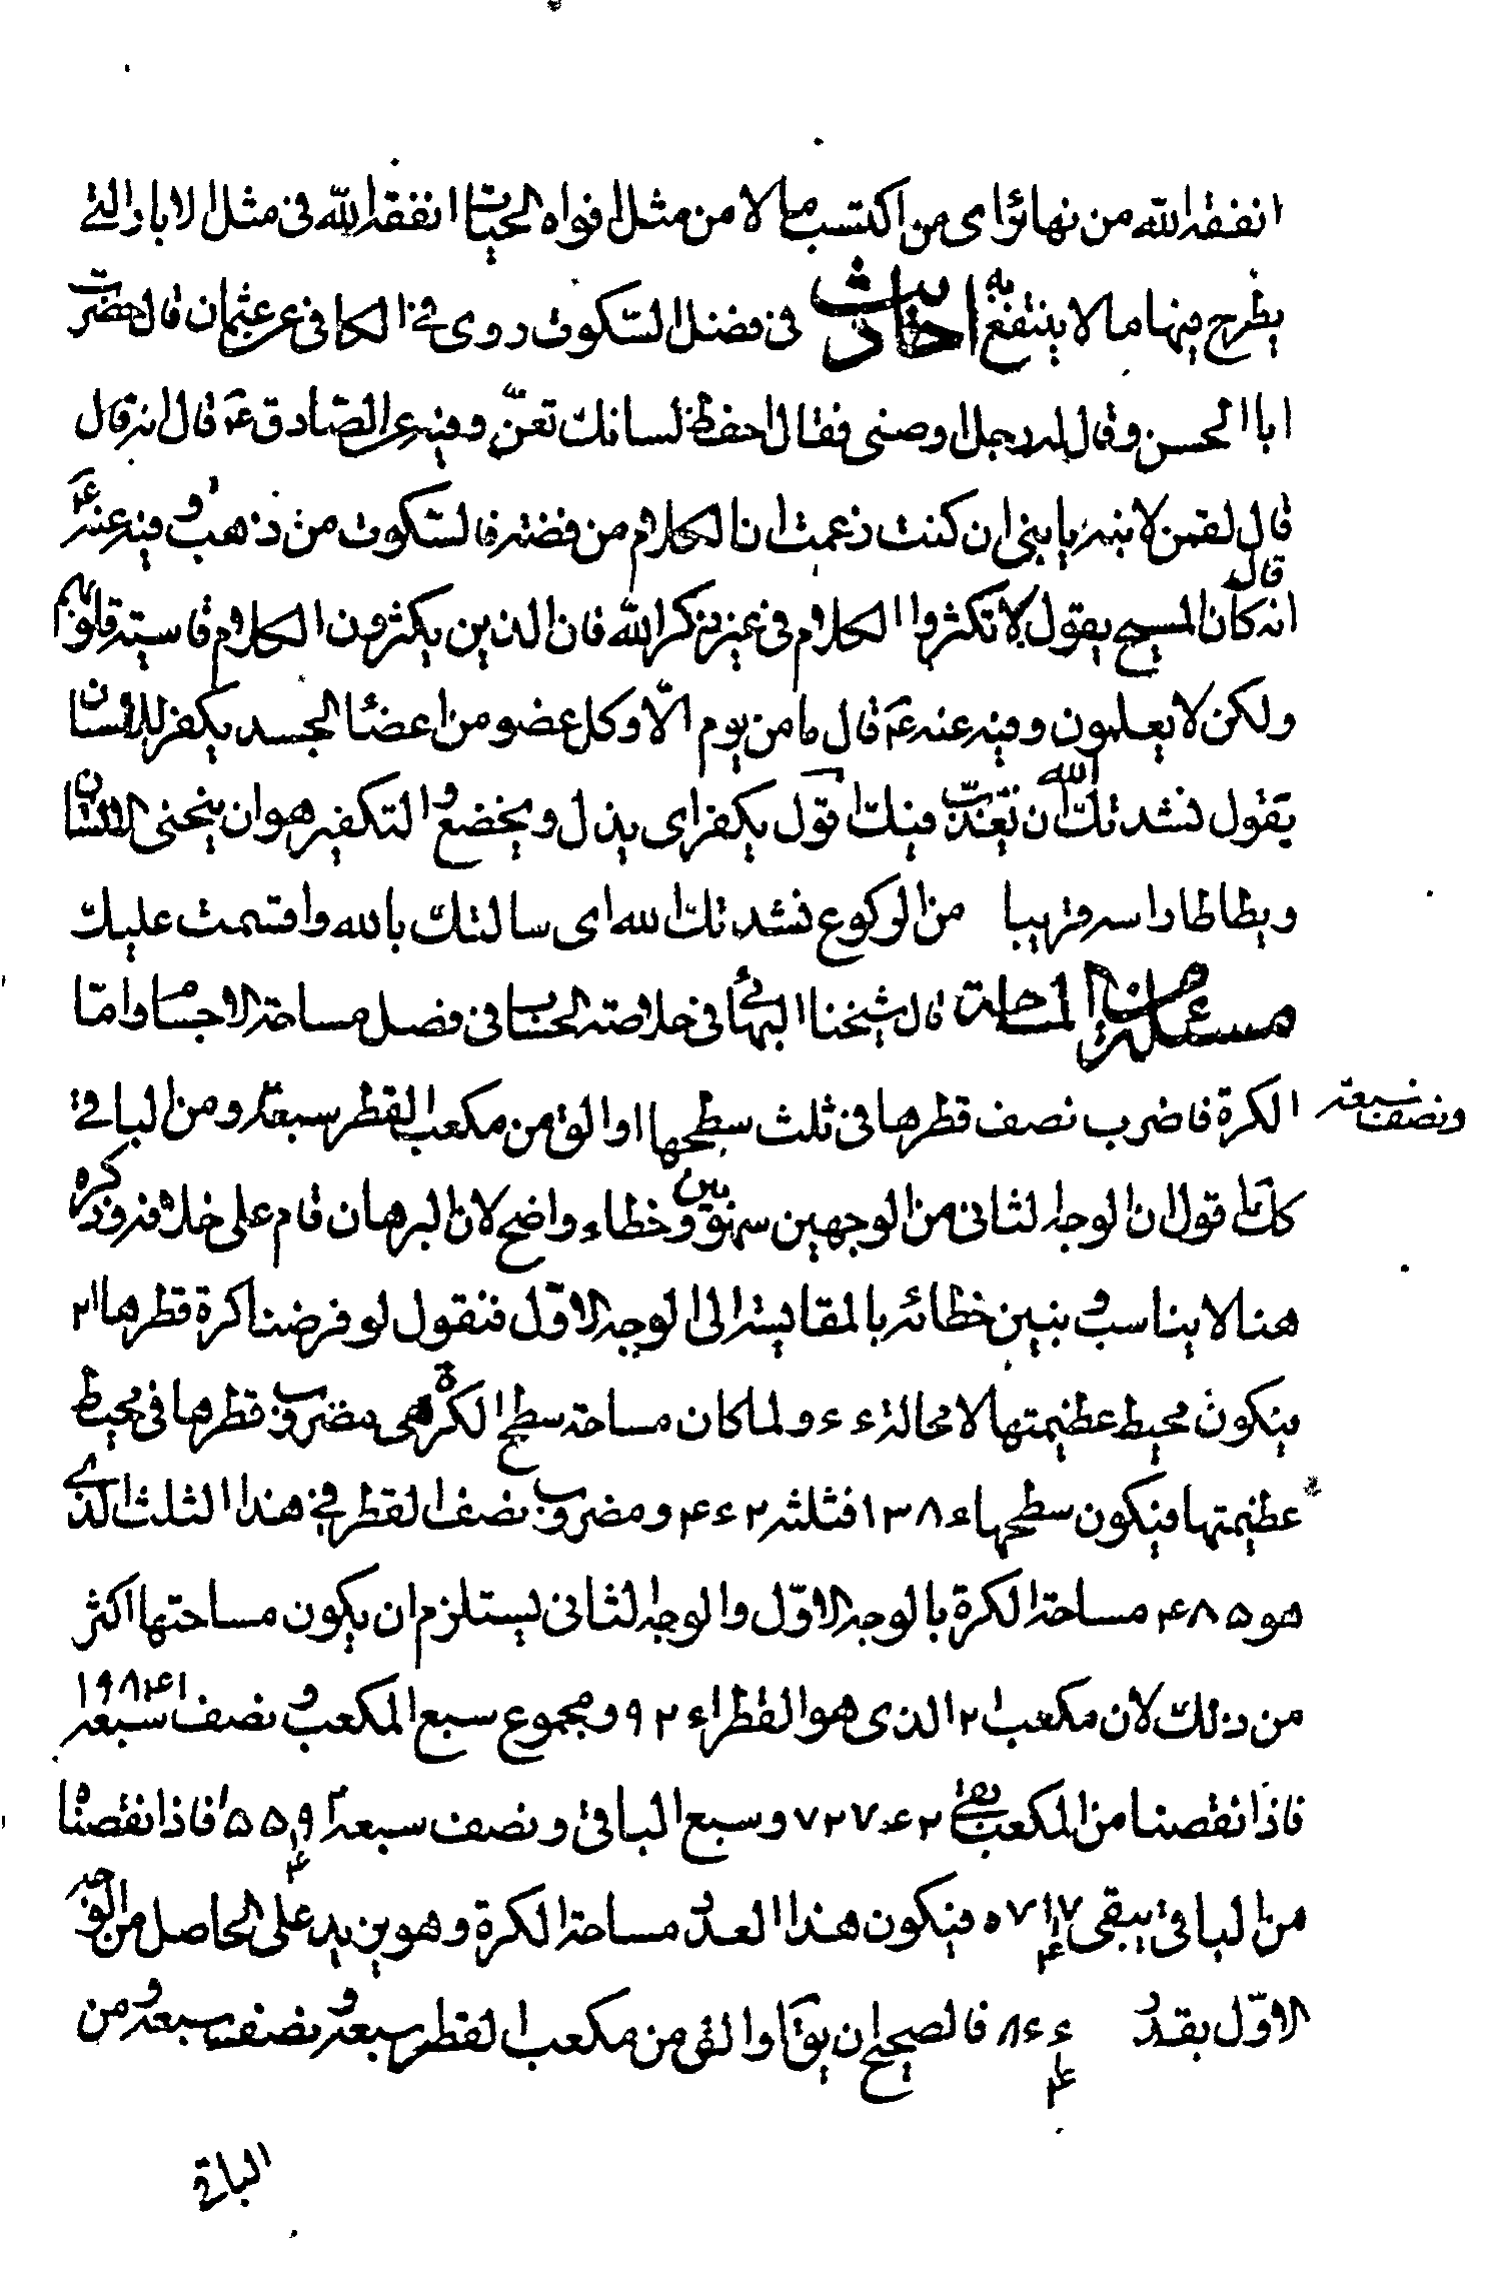 انفقه الله من نهائر ای من اکتسب مالا من مثل افواه الحیات انفقه الله فی مثل الابار التی
یطرح فیها ما لا ینتفع به احادیث فی فضل السکوت روی فی الکافی عن عثمان قال حضرت
ابا الحسن وقال له رجل اوصنی فقال احفظ لسانک تعزّ وفیه عن الصّادق ع قال انه قال
قال لقمن لابنه یا بنی ان کنت زعمت ان الکلام من فضته فالسکوت من ذهب وفیه عنه ع
قال انه کان المسیح یقول لا تکثروا الکلام فی غیر ذکر الله فان الذین یکثرون الکلام قاسیته قلوبهم
ولکن لا یعلمون وفیه عنه ع قال ما من یوم الّا وکل عضو من اعضا الجسد یکفر للسان
یقول نشدتک الله ان نعذب فیک اقول یکفر ای یذل ویخضع والتکفیر هو ان ینحنی الانسان
ویطاطا راسه قریبا من الرکوع نشدتک الله ای سالتک بالله واقسمت علیک
مسئلة من المساحة قال شیخنا البهائی فی خلاصته الحساب فی فصل مساحة الاجسام واما
الکرة فاضرب نصف قطرها فی ثلث سطحها او الق من مکعب القطر سبعه ومن الباقی
ونصف سبعه
کک اقول ان الوجه الثانی من الوجهین سهو بین وخطاء واضح لان البرهان قام علی خلافه وذکره
هنا لا یناسب ونبین خطائه بالمقایسة الی الوجه الاوّل فنقول لو فرضنا کرة قطرها ۲۱
فیکون محیط عظیمتها لا محالة ۶۶ ولما کان مساحة سطح الکرة هی مضروب قطرها فی محیط
عظیمتها فیکون سطحها ۱۳۸۶ فثلثه ۴۶۲ ومضروب نصف القطر فی هذا الثلث الذی
هو ۴۸۵۱ مساحة الکرة بالوجه الاوّل والوجه الثانی یستلزم ان یکون مساحتها اکثر
من ذلک لان مکعب ۲۱ الذی هو القطر ۹۲۶۱ ومجموع سبع المکعب ونصف سبعه ۱۹۸۴
فاذا نقصنا من المکعب بقی ۷۲۷۶ وسبع الباقی ونصف سبعه ۱۵۵۹ فاذا نقصناه
من الباقی یبقی ۵۷۱۷ فیکون هذا العدد مساحة الکرة وهو یزید علی الحاصل من الوجه
الاوّل بقدر ۸۶۶ فالصحیح ان یق او القی من مکعب القطر سبعه ونصف سبعه ومن
الباقی